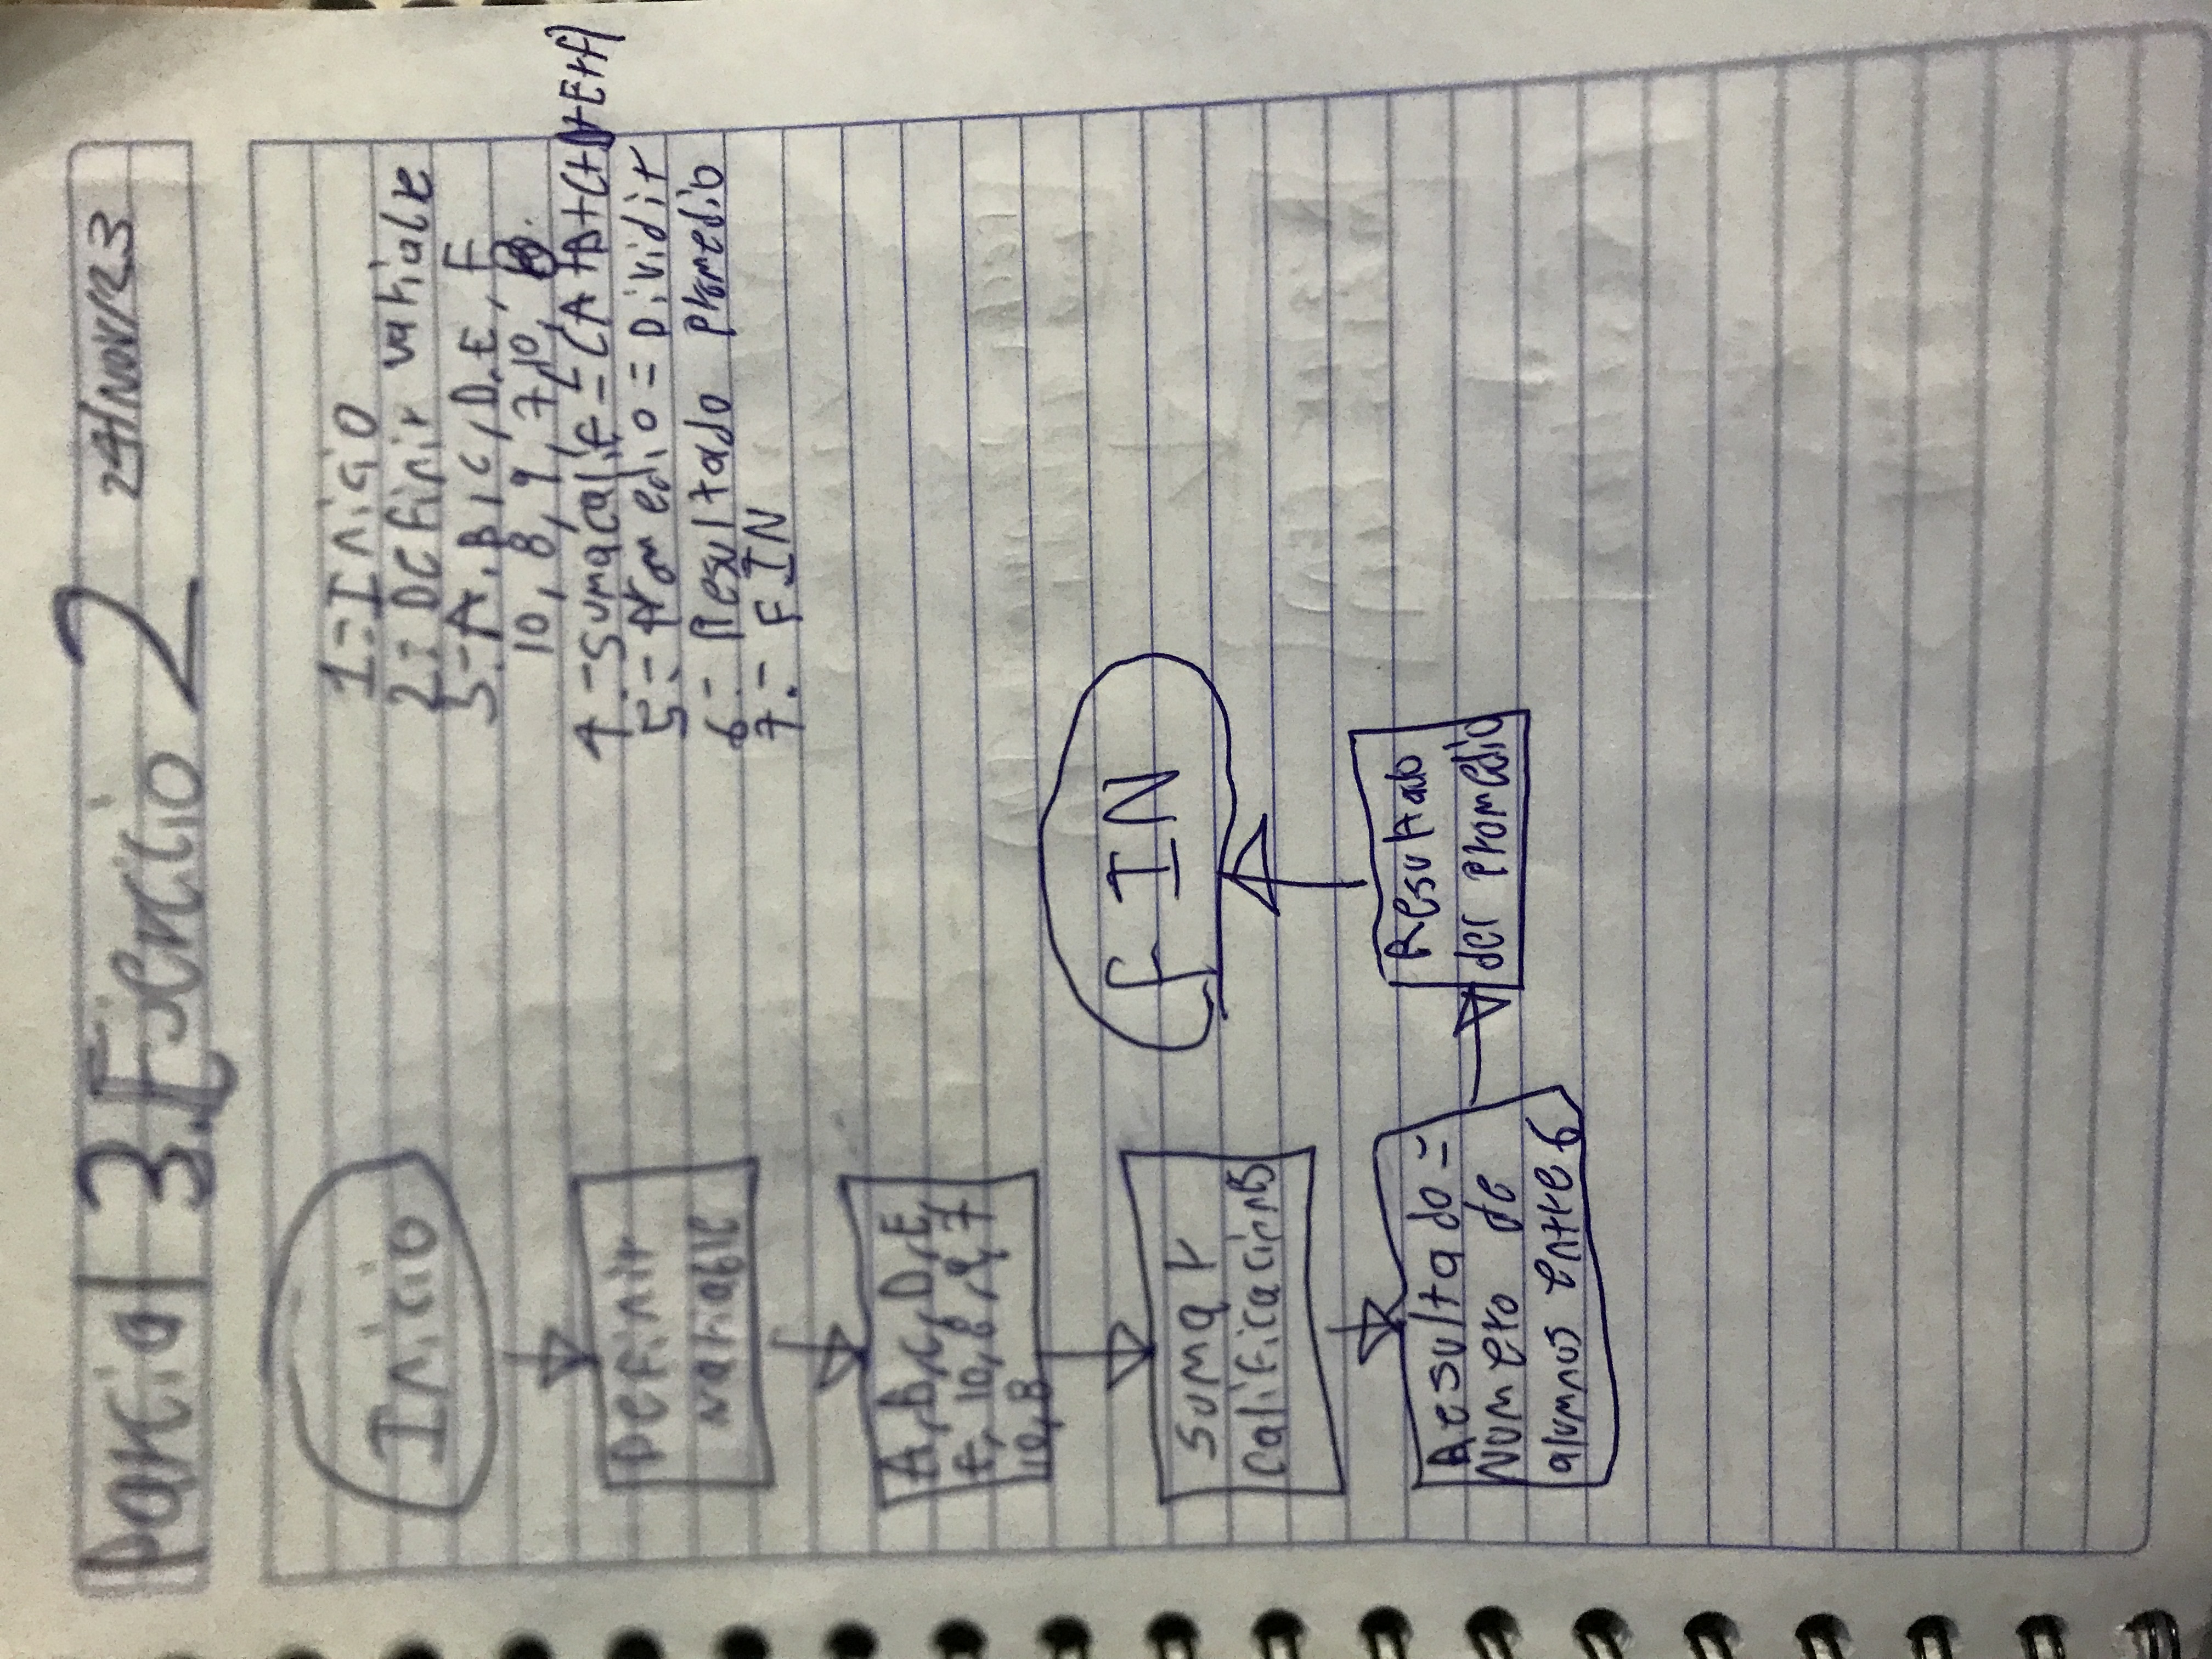 Parcial 3. Ejercicio 2 24/Nov/23
1.- Inicio
2.- Definir variable
A, B, C, D, E, F
10, 8, 9, 7, 10,
4.- Sumacalif = (A+B+C+D+E+F)
5.- Promedio = Dividir
6.- Resultado promedio
7.- FIN
Inicio
Definir
variable
A, B, C, D, E,
F, 10, 8, 9, 7
10, 8
sumar
calificacions
Resultado =
Numero de
alumnos entre 6
Resultado
der promedio
FIN